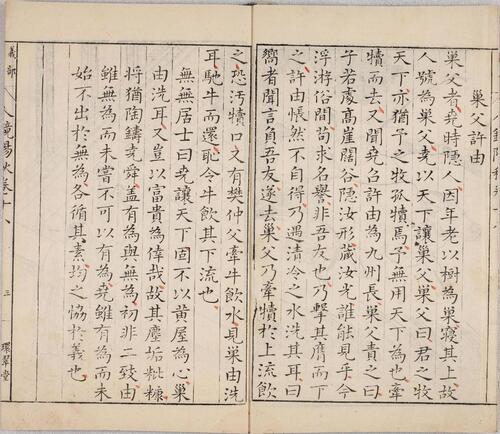 巢父許由
巢父者堯時隱人因年老以樹為巢寢其上故
人號為巢父堯以天下讓巢父巢父曰君之牧
天下亦猶予之牧孤犢焉予無用天下為也牽
犢而去又聞堯召許由為九州長巢父責之曰
子若處高崖闊谷隱汝形藏汝光誰能見乎今
浮游俗間苟求名譽非吾友也乃擊其膺而下
之許由悵然不自得乃遇清冷之水洗其耳曰
嚮者聞言負吾友遂去巢父乃牽犢於上流飲
之恐汚犢口又有樊仲父牽牛飲水見巢由洗
耳馳牛而還恥令牛飲其下流也
無無居士曰堯讓天下固不以黃屋為心巢
由洗耳又豈以富貴為偉哉故其塵垢粃糠
將猶陶鑄堯舜蓋有為與無為初非二致由
雖無為而未嘗不可以有為堯雖有為而未
始不出於無為各循其素均之恊於義也
義部 人鏡陽秋卷十八 三 環翠堂